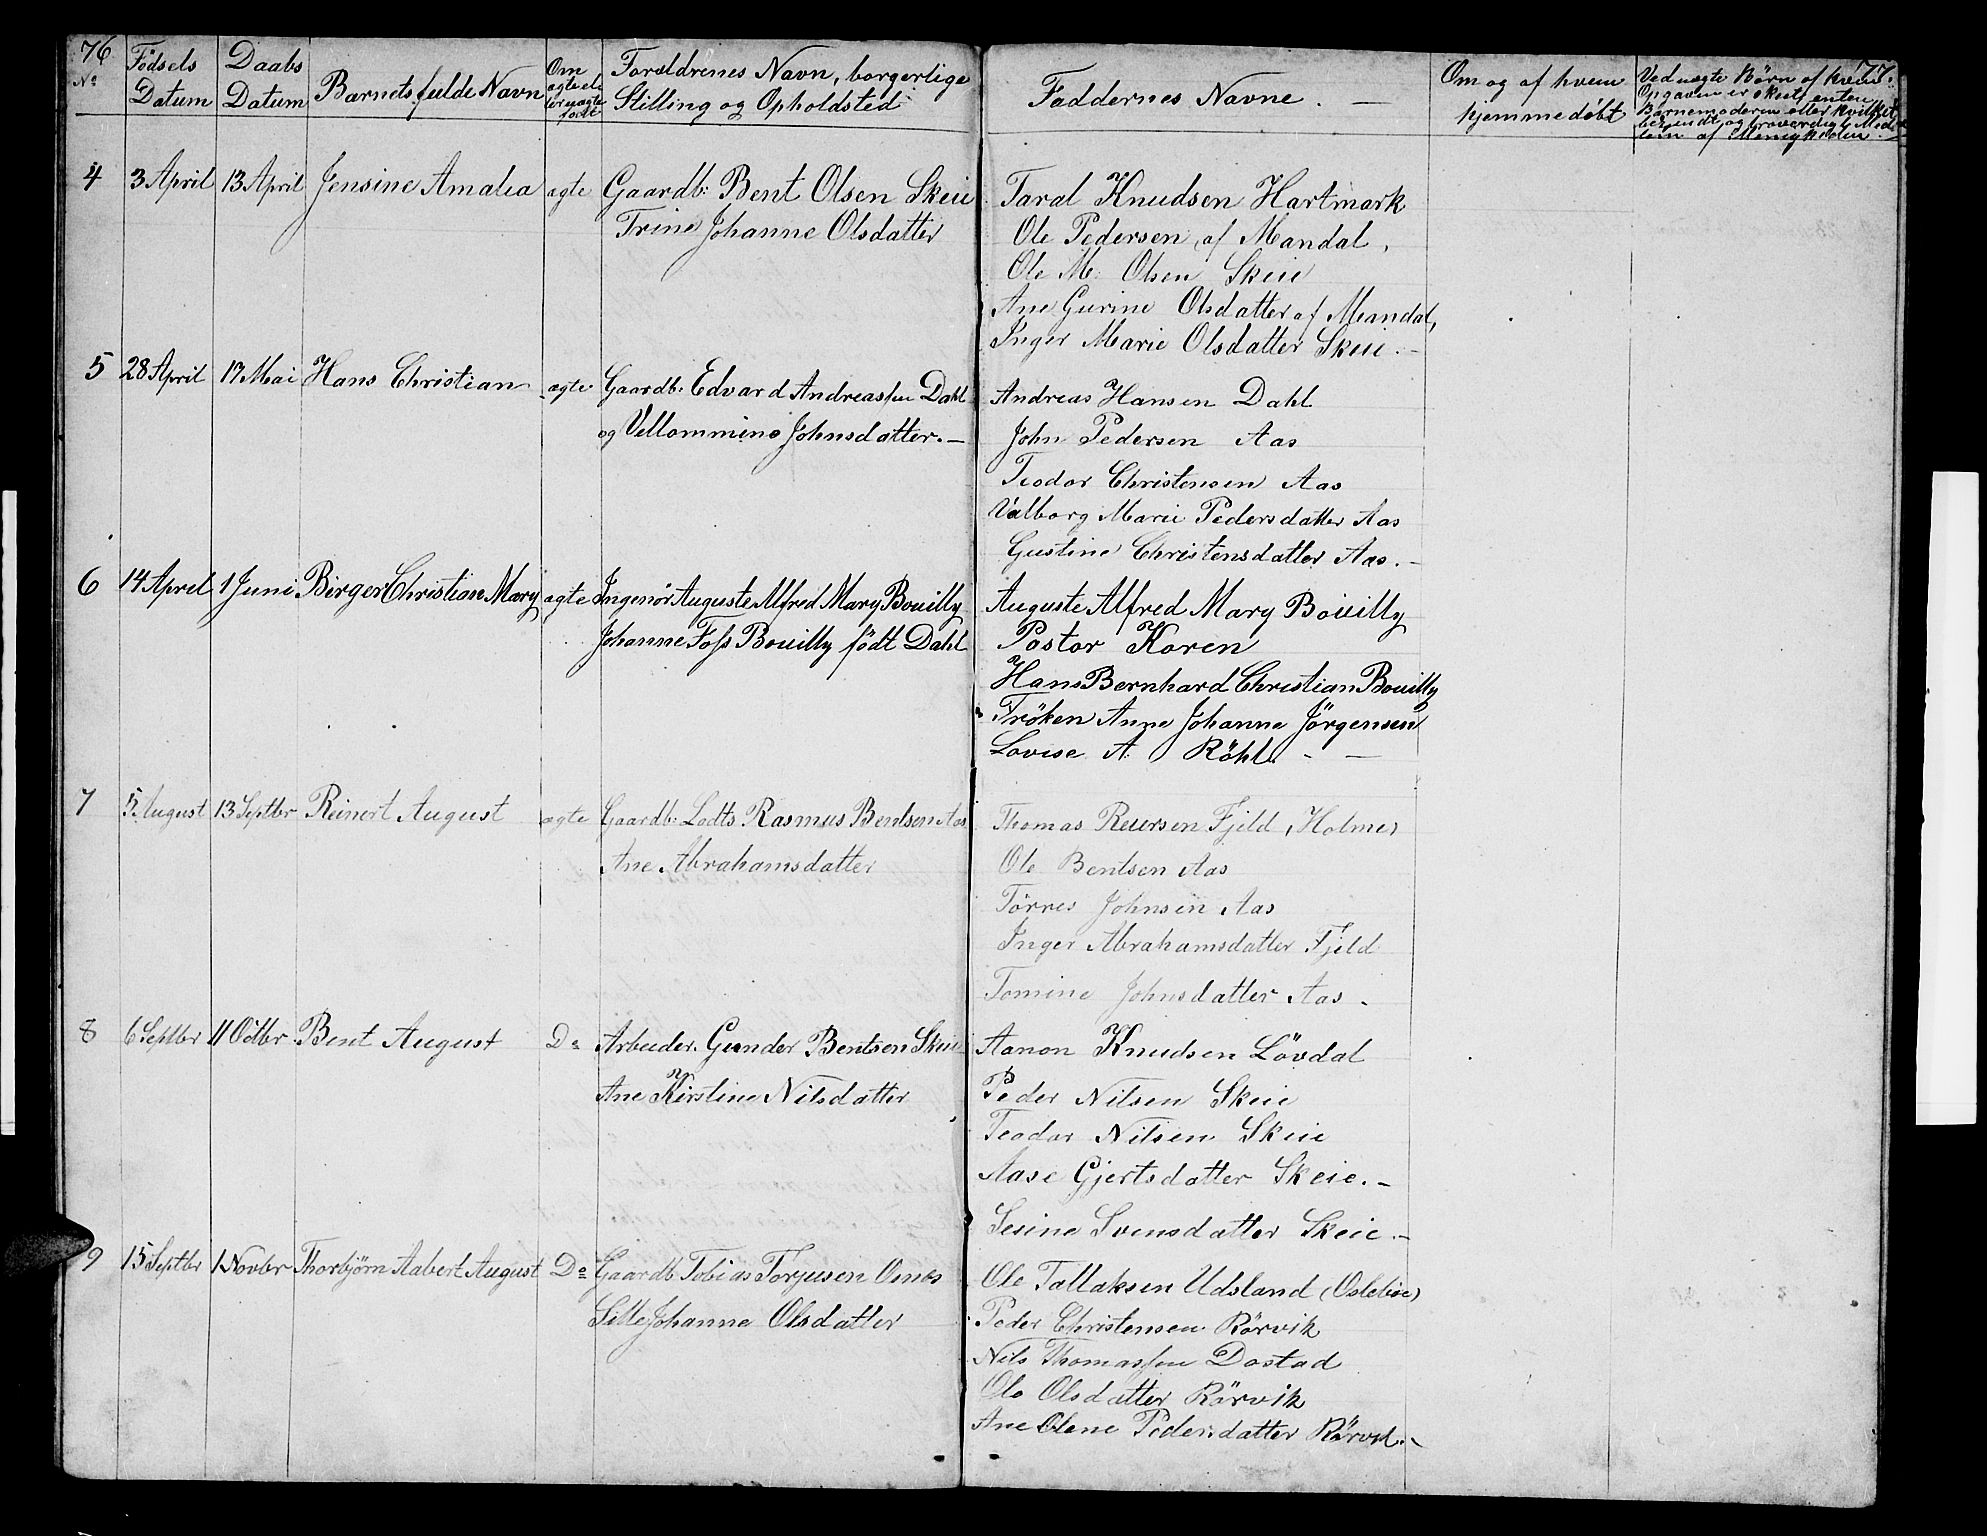 76
No
Födsels
Datum
Daabs
Datum
Barnets fulde Navn
Om
ægte el
ler uægte
født
Forældrenes Navn, borgerlige
Stilling og Opholdsted
Faddernes Navne. —
Om og af hvem
hjemmedöbt
77.
Ved uægte Börn af hvem
Opgaven er skeet, enten
Barnemoderen eller hvilket
bekjendt og troværdigt Med-
lem af Menigheden.
4 3 April 13 April Jensine Amalia ægte Gaardb: Bent Olsen Skeie
Trine Johanne Olsdatter
Taral Knudsen Hartmark
Ole Pedersen, af Mandal,
Ole M. Olsen Skeie
Ane Gurine Olsdatter af Mandal,
Inger Marie Olsdatter Skeie. –
5 28 April 17 Mai Hans Christian ægte Gaardb: Edvard Andreassen Dahl
og Vellommine Johnsdatter. —
Andreas Hansen Dahl
John Pedersen Aas
Teodor Christensen Aas
Valborg Marie Pedersdatter Aas
Gustine Christensdatter Aas. –
6 14 April 1 Juni Birger Christian Mary ægte Ingenör Auguste Alfred Mary Bouilly
Johanne Foss Bouilly födt Dahl
Auguste Alfred Mary Bouilly
Pastor Koren
Hans Bernhard Christian Bouilly
Fröken Anne Johanne Jörgensen
Lovise A. Röhl. - —
7 5 August 13 Septbr Reinert August ægte Gaardb: Lodts Rasmus Bentsen Aas
Ane Abrahamsdatter
Thomas Reiersen Fjeld, Holme)
Ole Bentsen Aas
Törres Johnsen Aas
Inger Abrahamsdatter Fjeld
Tomine Johnsdatter Aas.
8 6 Septbr 11 Octbr Bent August Do Arbeider. Gunder Bentsen Skeie
Ane Kirstine Nilsdatter
Aanon Knudsen Lövdal
Peder Nilsen Skeie
Teodor Nilsen Skeie
Aase Gjertsdatter Skeie. –
Sesine Svensdatter Skeie. –
9 15 Septbr 1 Novbr Thorbjörn Aabert August Do Gaardb Tobias Torjusen Omes
Sille Johanne Olsdatter
Ole Tallaksen Udsland (Oslebic)
Peder Christensen Rörvik
Nils Thomassen Dostad
Ole Olsdatter Rörvik
Ane Olene Pedersdatter Rörvik. –